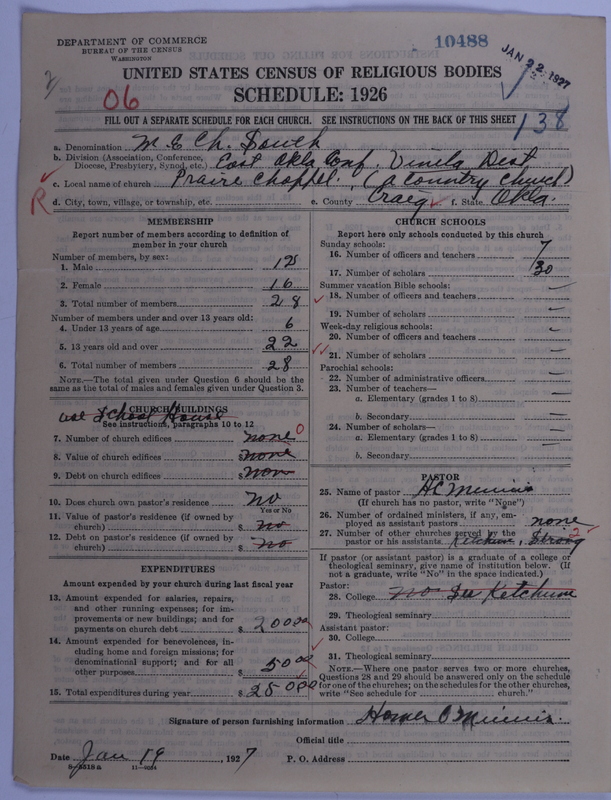 DEPARTMENT OF COMMERCE
BUREAU OF THE CENSUS
WASHINGTON
10488
JAN 22 1927
UNITED STATES CENSUS OF RELIGIOUS BODIES
06
SCHEDULE: 1926
FILL OUT A SEPARATE SCHEDULE FOR EACH CHURCH. SEE INSTRUCTIONS ON THE BACK OF THIS SHEET
138
a. Denomination M. E. Ch. South
b. Division (Association, Conference, Diocese, Presbytery, Synod, etc.) East Okla Conf. Vinita Dist
c. Local name of church Praire Chappel. (a Country Church)
R d. City, town, village, or township, etc. e. County Craig f. State Okla.
MEMBERSHIP
Report number of members according to definition of
member in your church
Number of members, by sex:
1. Male 12
2. Female 16
3. Total number of members 28
Number of members under and over 13 years old:
4. Under 13 years of age 6
5. 13 years old and over 22
6. Total number of members 28
NOTE.—The total given under Question 6 should be the
same as the total of males and females given under Question 3.
CHURCH BUILDINGS
use School House
See instructions, paragraphs 10 to 12
7. Number of church edifices none 0
8. Value of church edifices $ none
9. Debt on church edifices $ non
10. Does church own pastor's residence no
Yes or No
11. Value of pastor's residence (if owned by
church) $ no
12. Debt on pastor's residence (if owned by
church) $ no
EXPENDITURES
Amount expended by your church during last fiscal year
13. Amount expended for salaries, repairs,
and other running expenses; for im-
provements or new buildings; and for
payments on church debt $ 200 00
14. Amount expended for benevolences, in-
cluding home and foreign missions; for
denominational support; and for all
other purposes $ 50 00
15. Total expenditures during year $ 250 00
CHURCH SCHOOLS
Report here only schools conducted by this church
Sunday schools:
16. Number of officers and teachers 7
17. Number of scholars 30
Summer vacation Bible schools:
18. Number of officers and teachers —
19. Number of scholars —
Week-day religious schools:
20. Number of officers and teachers —
21. Number of scholars —
Parochial schools:
22. Number of administrative officers —
23. Number of teachers—
a. Elementary (grades 1 to 8) —
b. Secondary —
24. Number of scholars—
a. Elementary (grades 1 to 8) —
b. Secondary
PASTOR
25. Name of pastor
(If church has no pastor, write "None")
26. Number of ordained ministers, if any, em-
ployed as assistant pastors none
27. Number of other churches served by the 2
pastor or his assistants Ketchum, Strong
If pastor (or assistant pastor) is a graduate of a college or
theological seminary, give name of institution below. (If
not a graduate, write "No" in the space indicated.)
Pastor:
28. College no See Ketchum
29. Theological seminary
Assistant pastor:
30. College
31. Theological seminary
NOTE.—Where one pastor serves two or more churches,
Questions 28 and 29 should be answered only on the schedule
for one of the churches; on the schedules for the other churches,
write "See schedule for church."
Signature of person furnishing information Homer
Official title
Date Jan 19, 1927 P. O. Address